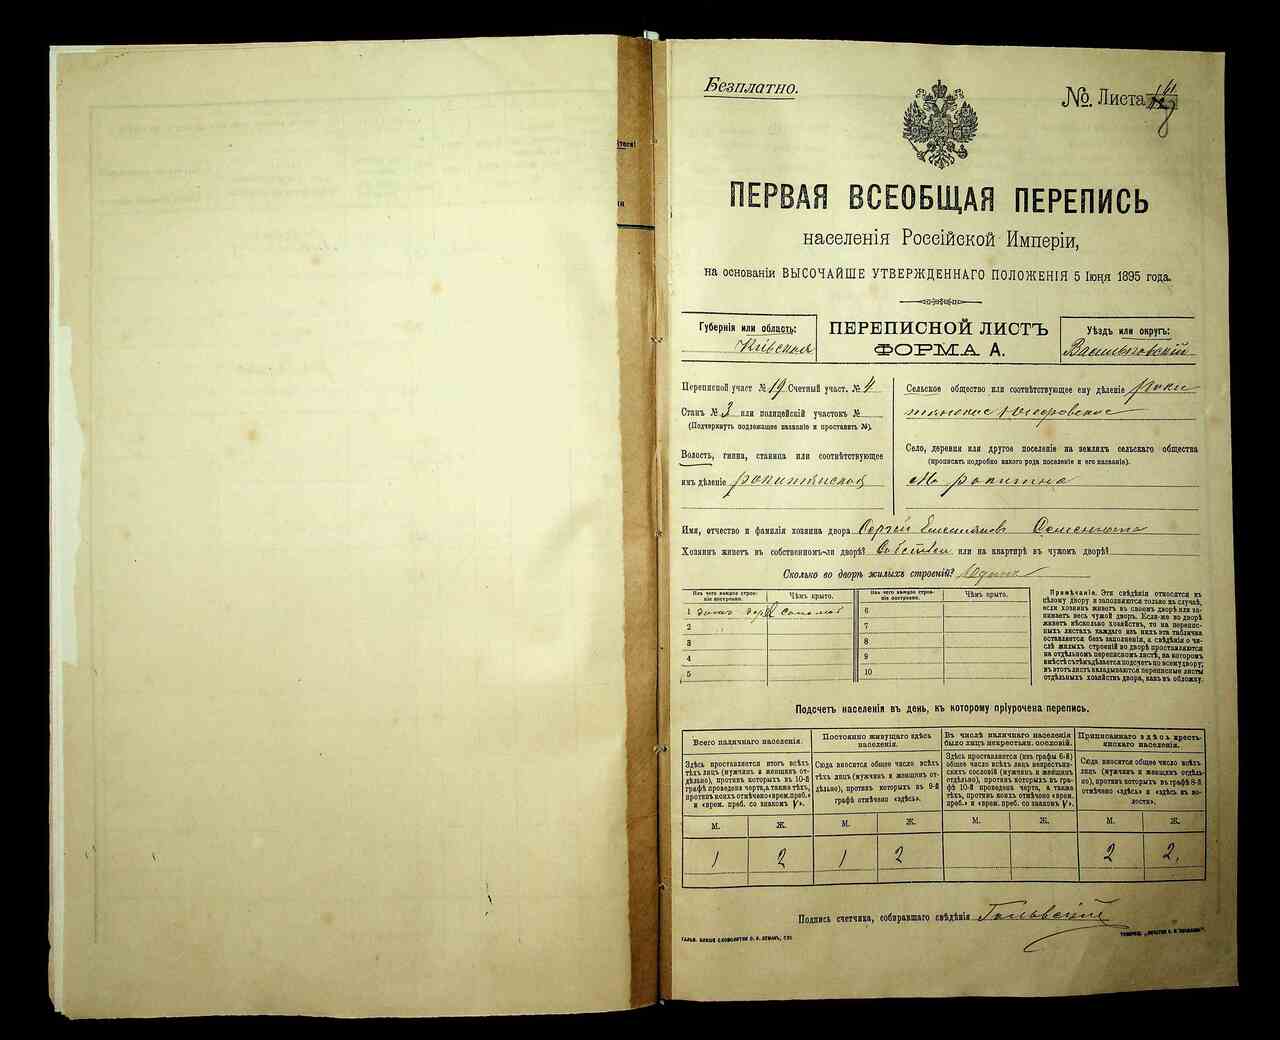 Безплатно.
№ Листа
ПЕРВАЯ ВСЕОБЩАЯ ПЕРЕПИСЬ
населенія Россійской Имперіи,
на основаніи ВЫСОЧАЙШЕ УТВЕРЖДЕННАГО ПОЛОЖЕНІЯ 5 Іюня 1895 года.
Губернія или область:
Кіевская
ПЕРЕПИСНОЙ ЛИСТЪ
ФОРМА А.
Уѣздъ или округъ:
Васильковскій
Переписной участ. № 19 Счетный участ. № 4
Станъ № 3 или полицейскій участокъ №
(Подчеркнуть подлежащее названіе и проставить №).
Волость, гмина, станица или соотвѣтствующее
имъ дѣленіе
Сельское общество или соотвѣтствующее ему дѣленіе
Село, деревня или другое поселеніе на земляхъ сельскаго общества
(прописать подробно какого рода поселеніе и его названіе).
Имя, отчество и фамилія хозяина двора Сергѣй Емельяновъ
Хозяинъ живетъ въ собственномъ-ли дворѣ? или на квартирѣ въ чужомъ дворѣ?
Сколько во дворѣ жилыхъ строеній?
Изъ чего каждое строе-
ніе построено.
Чѣмъ крыто.
1 соломой
2
3
4
5
Изъ чего каждое строе-
ніе построено.
Чѣмъ крыто.
6
7
8
9
10
Примѣчаніе. Эти свѣдѣнія относятся къ
цѣлому двору и заполняются только въ случаѣ,
если хозяинъ живетъ въ своемъ дворѣ или за-
нимаетъ весь чужой дворъ. Если-же во дворѣ
живетъ нѣсколько хозяйствъ, то на перепис-
ныхъ листахъ каждаго изъ нихъ эта табличка
оставляется безъ заполненія, а свѣдѣнія о чи-
слѣ жилыхъ строеній во дворѣ проставляются
на отдѣльномъ переписномъ листѣ, на которомъ
вмѣстѣ съ тѣмъ дѣлается подсчетъ по всему двору;
въ этотъ листъ вкладываются переписные листы
отдѣльныхъ хозяйствъ двора, какъ въ обложку.
Подсчетъ населенія въ день, къ которому пріурочена перепись.
Всего наличнаго населенія.
Здѣсь проставляется итогъ всѣхъ
тѣхъ лицъ (мужчинъ и женщинъ от-
дѣльно), противъ которыхъ въ 10-й
графѣ проведена черта, а также тѣхъ,
противъ коихъ отмѣчено «врем. преб.»
и «врем. преб. со знакомъ V».
Постоянно живущаго здѣсь
населенія.
Сюда вносится общее число всѣхъ
тѣхъ лицъ (мужчинъ и женщинъ от-
дѣльно), противъ которыхъ въ 9-й
графѣ отмѣчено «здѣсь».
Въ числѣ наличнаго населенія
было лицъ некрестьян. сословій.
Здѣсь проставляется (изъ графы 6-й)
общее число всѣхъ лицъ некрестьян-
скихъ сословій (мужчинъ и женщинъ
отдѣльно), противъ которыхъ въ гра-
фѣ 10-й проведена черта, а также
тѣхъ, противъ коихъ отмѣчено «врем.
преб.» и «врем. преб. со знакомъ V».
Приписаннаго здѣсь кресть-
янскаго населенія.
Сюда вносится общее число всѣхъ
лицъ (мужчинъ и женщинъ отдѣль-
но), противъ которыхъ въ графѣ 8-й
отмѣчено «здѣсь» и «здѣсь въ во-
лости».
М. Ж. М. Ж. М. Ж. М. Ж.
1 2 1 2 2 2.
Подпись счетчика, собиравшаго свѣдѣнія